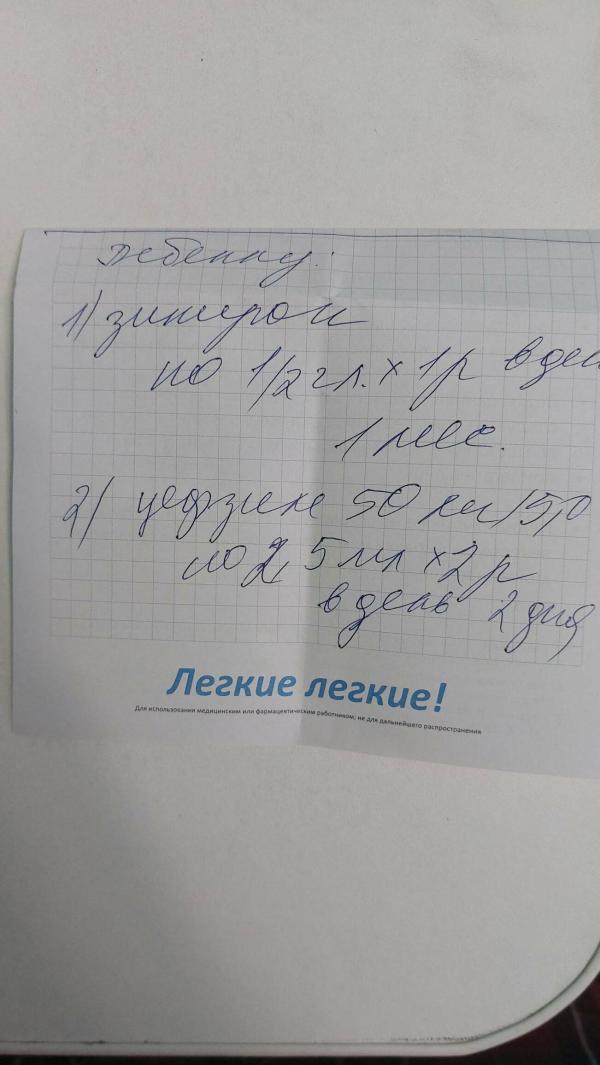 ребенку:
1) зитрон
по 1/2 гл. х 1р в ден
1 мес.
2) цефзик 50 мл/5,0
по 2,5 мл х 2 р
в день 2 дня
Легкие легкие!
Для использования медицинским или фармацевтическим работником; не для дальнейшего распространения